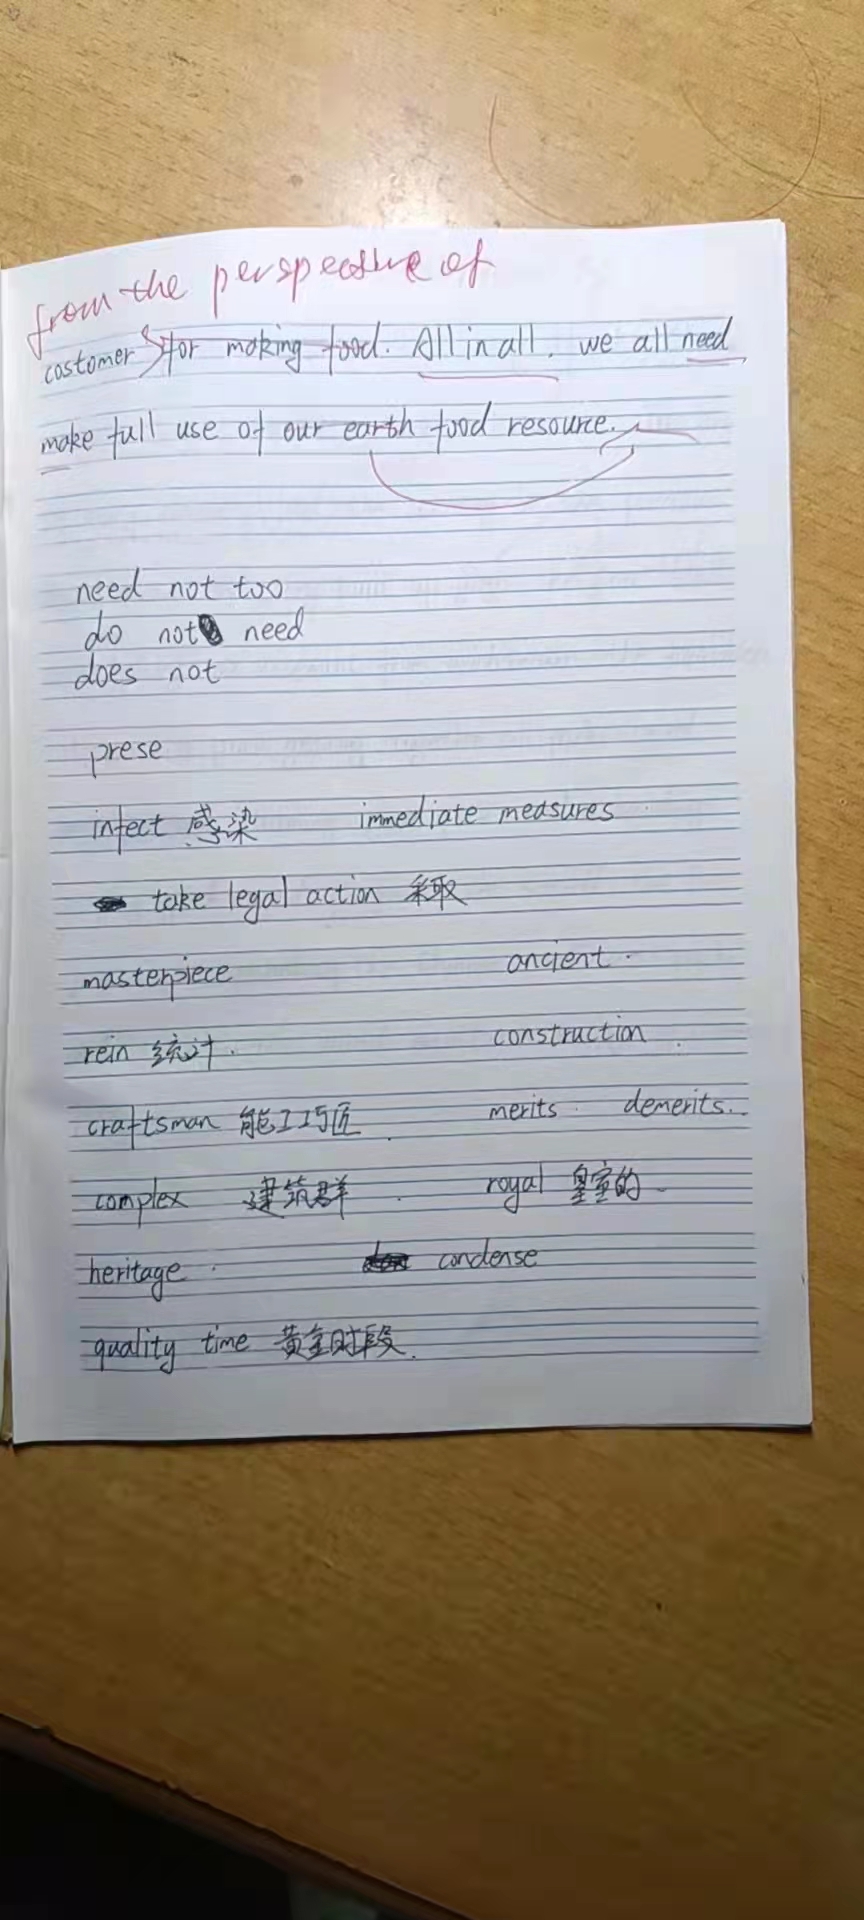 from the perspective of
costomer for making food. All in all, we all need
make full use of our earth food resource.
need not too
do not need
does not
prese
infect 感染 immediate measures
take legal action 采取
masterpiece ancient
rein 统计
construction
craftsman 能工巧匠 merits demerits
complex 建筑群 royal 皇室的
heritage condense
quality time 黄金时段